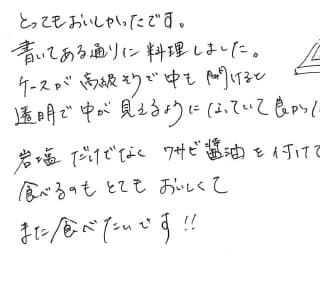 とってもおいしかったです。
書いてある通りに料理しました。
ケースが高級そうで中も開けると
透明で中が見えるようになっていて良かった
岩塩だけでなくワサビ醤油を付けて
食べるのもとてもおいしくて
また食べたいです!!